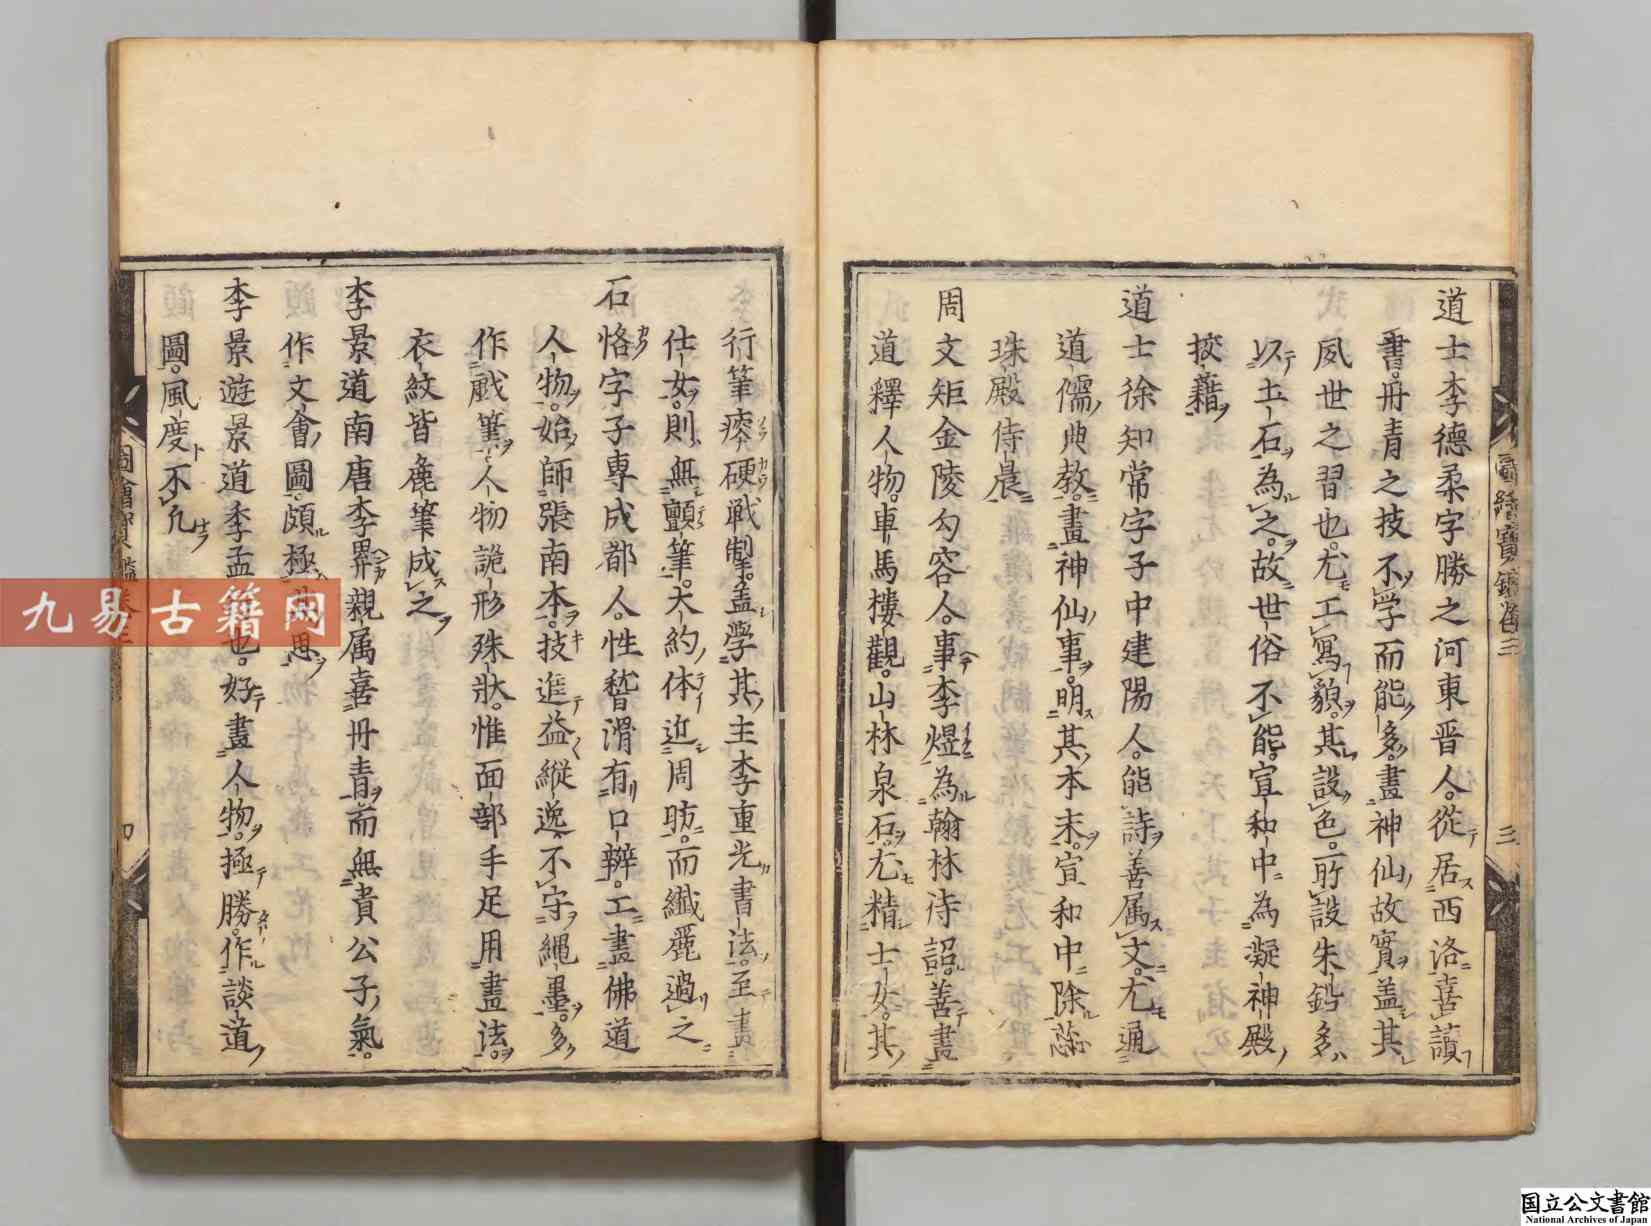 道士李德柔字勝之河東晋人從居西洛喜讀
書丹青之技不学而能多畫神仙故實盖其
夙世之習也尤工寫貌其設色所設朱鉛多
以土石為之故世俗不能宣和中為凝神殿
挍籍
道士徐知常字子中建陽人能詩善属文尤通
道儒典教畫神仙事明其本末宣和中除蕊
珠殿侍晨
周文矩金陵勾容人事李煜為翰林待詔善畫
道釋人物車馬樓觀山林泉石尤精士女其
圖繪寶鑑卷三
三
行筆瘦硬戦制盖学其主李重光書法至畫
仕女則無顫筆大約体近周昉而纖麗過之
石恪字子専成都人性嵇滑有口辯工畫佛道
人物始師張南本技進益縱逸不守繩墨多
作戱筆人物詭形殊狀惟面部手足用畫法
衣紋皆麁筆成之
李景道南唐李昪親属喜丹青而無貴公子氣
作文會圖頗極思
李景遊景道季孟也好畫人物極勝作談道
圖風度不凢
九易古籍网
国立公文書館
National Archives of Japan